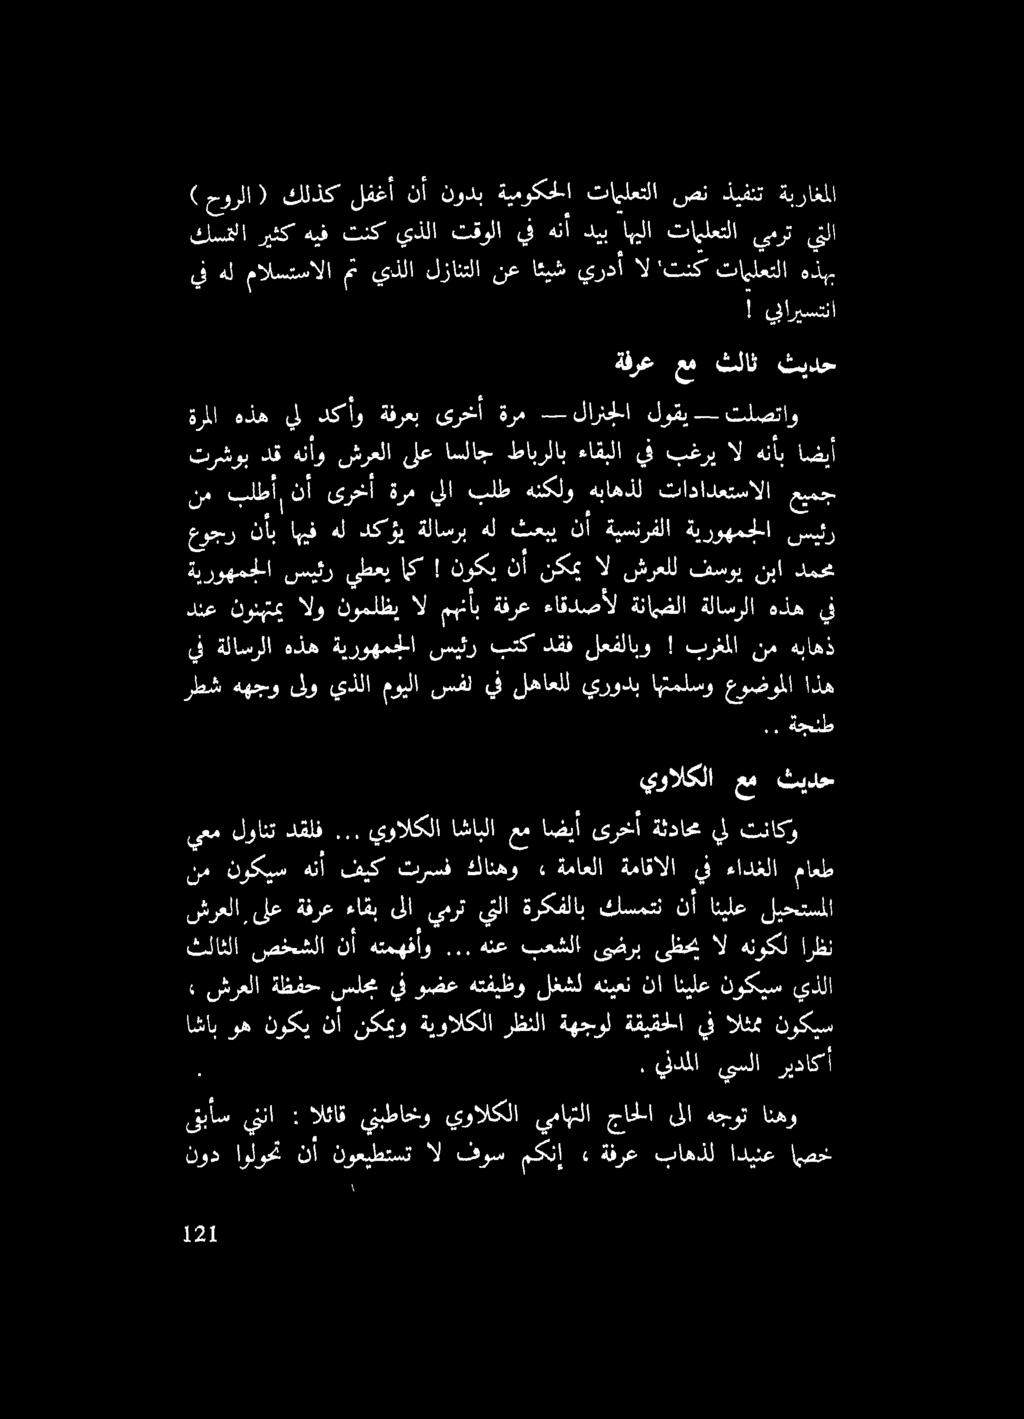 المغاربة تنفيذ نص التعليمات الحكومية بدون أن أغفل كذلك ( الروح )
التي ترمي التعليمات اليها بيد أنه في الوقت الذي كنت فيه كثير التمسك
بهذه التعليمات كنت لا أدري شيئا عن التنازل الذي تم الاستسلام له في
انتسيرابي !
حديث ثالث مع عرفة
واتصلت — يقول الجنرال — مرة أخرى بعرفة وأكد لي هذه المرة
أيضا بأنه لا يرغب في البقاء بالرباط جالسا على العرش وأنه قد بوشرت
جميع الاستعدادات لذهابه ولكنه طلب الي مرة أخرى أن أطلب من
رئيس الجمهورية الفرنسية أن يبعث له برسالة يؤكد له فيها بأن رجوع
محمد ابن يوسف للعرش لا يمكن أن يكون ! كما يعطي رئيس الجمهورية
في هذه الرسالة الضمانة لأصدقاء عرفة بأنهم لا يظلمون ولا يمتهنون عند
ذهابه من المغرب ! وبالفعل فقد كتب رئيس الجمهورية هذه الرسالة في
هذا الموضوع وسلمتها بدوري للعاهل في نفس اليوم الذي ولى وجهه شطر
طنجة ..
حديث مع الكلاوي
وكانت لي محادثة أخرى أيضا مع الباشا الكلاوي ... فلقد تناول معي
طعام الغداء في الاقامة العامة ، وهناك فسرت كيف أنه سيكون من
المستحيل علينا أن نتمسك بالفكرة التي ترمي الى بقاء عرفة على العرش
نظرا لكونه لا يحظى برضى الشعب عنه ... وأفهمته أن الشخص الثالث
الذي سيكون علينا ان نعينه لشغل وظيفته عضو في مجلس حفظة العرش ،
سيكون ممثلا في الحقيقة لوجهة النظر الكلاوية ويمكن أن يكون هو باشا
أكادير السي المدني .
وهنا توجه الى الحاج التهامي الكلاوي وخاطبني قائلا : انني سأبقى
خصما عنيدا لذهاب عرفة ، إنكم سوف لا تستطيعون أن تحولوا دون
121